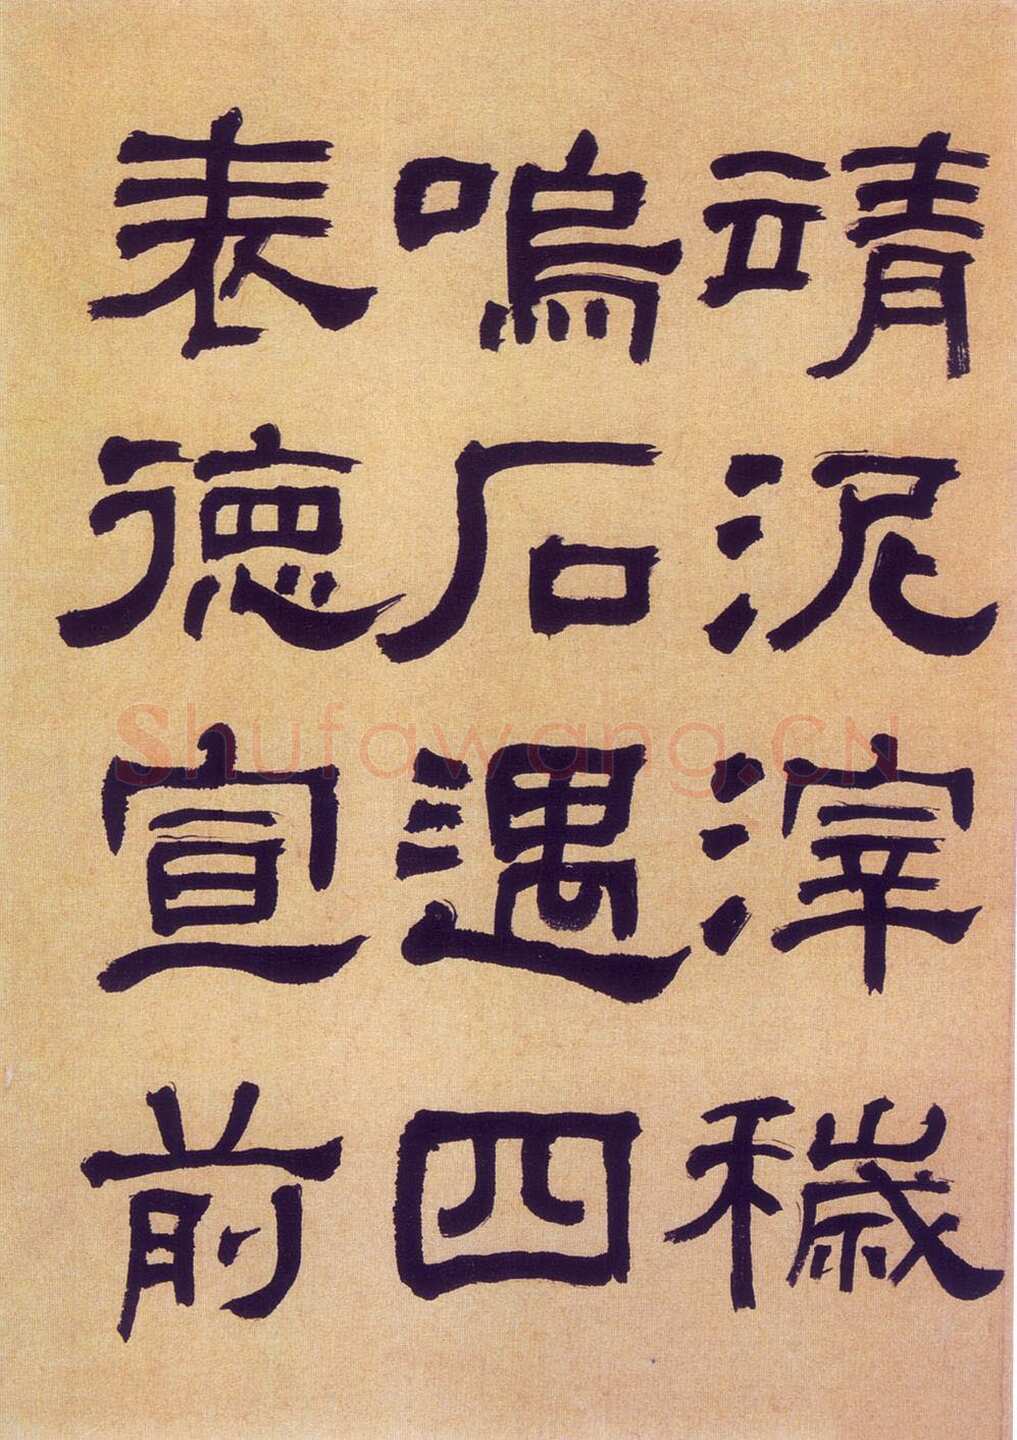 靖泥滓穢
鳴石遇四
表徳宣前
Shufawang.CN